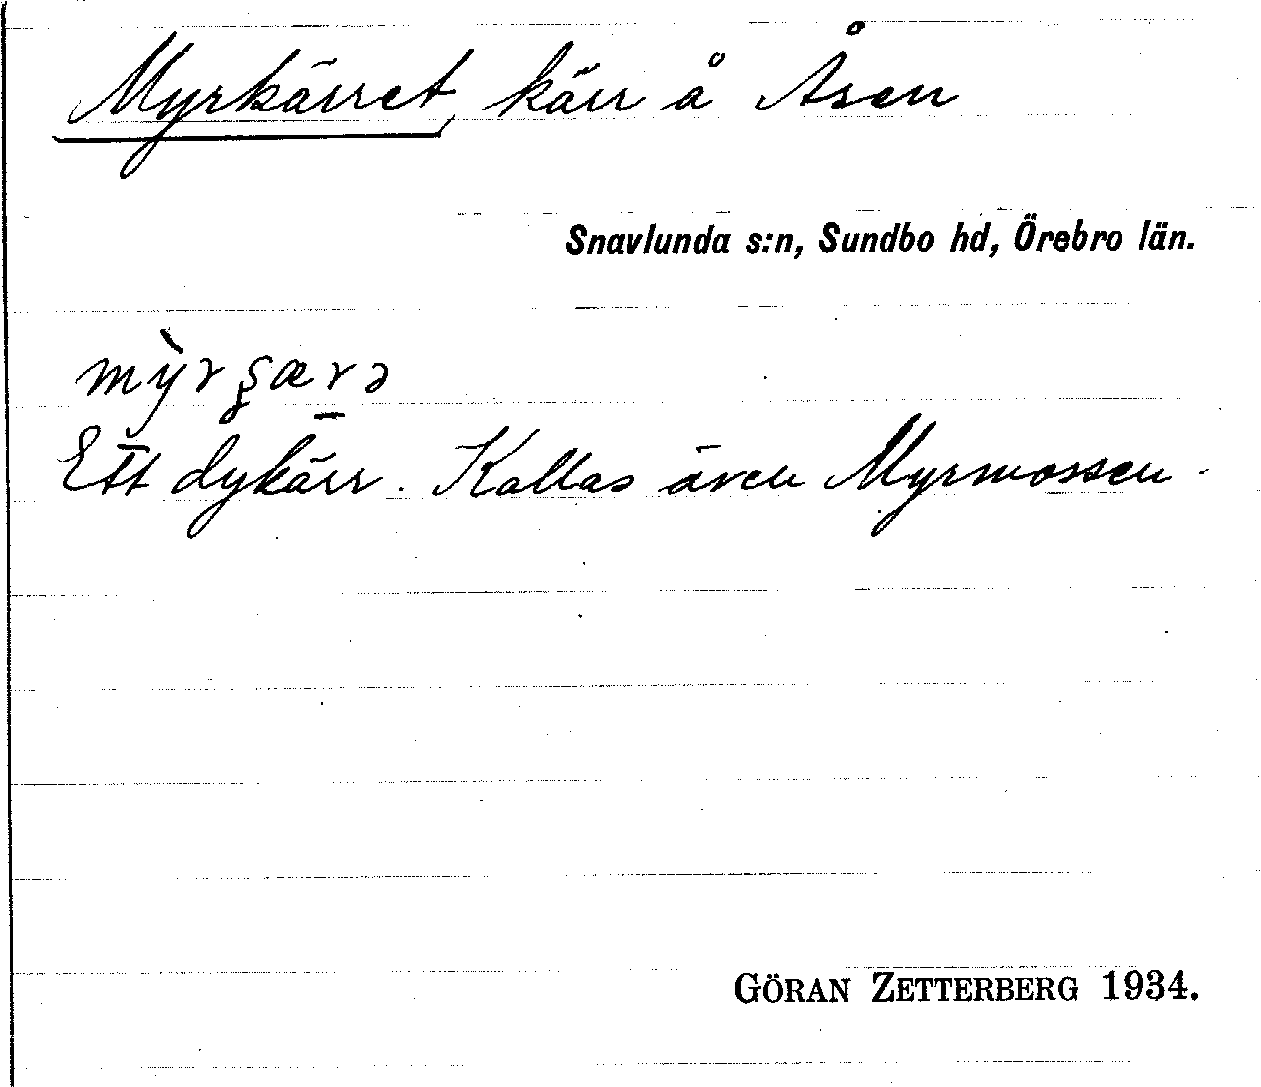 Myrkärret, kärr å Åsen
Snavlunda s:n, Sundbo hd, Örebro län.
Ett dykärr. Kallas även Myrmossen.
GÖRAN ZETTERBERG 1934.